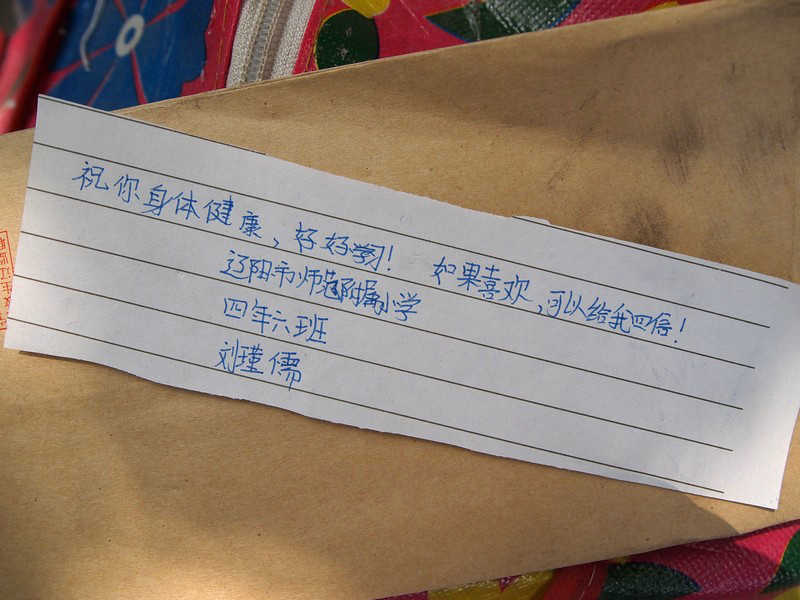 祝你身体健康，好好学习！ 如果喜欢，可以给我回信！
辽阳市师范附属小学
四年六班
刘瑾儒